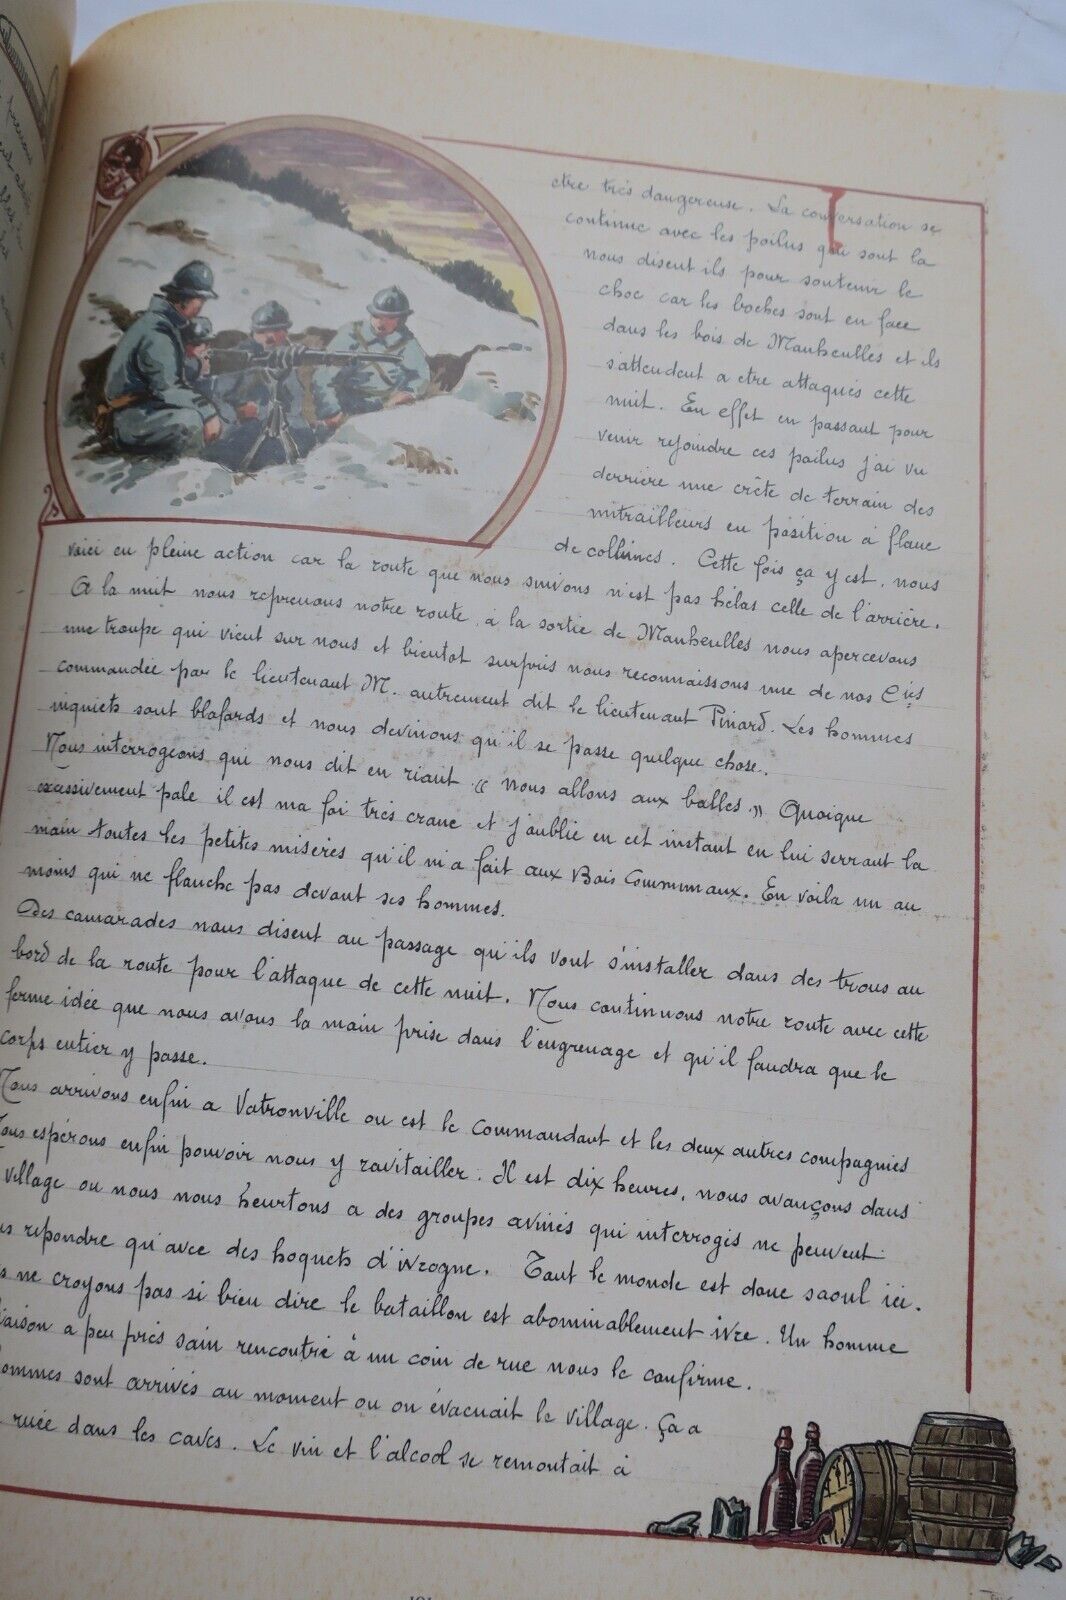 etre très dangereuse. La conversation se
continue avec les poilus qui sont la
nous disent ils pour soutenir le
choc car les boches sont en face
dans les bois de Manheulles et ils
s'attendent a etre attaqués cette
nuit. En effet en passant pour
venir rejoindre ces poilus j'ai vu
derrière une crête de terrain des
mitrailleurs en position à flanc
de collines. Cette fois ça y est, nous
voici en pleine action car la route que nous suivons n'est pas hélas celle de l'arrière.
A la nuit nous reprenons notre route, à la sortie de Manheulles nous apercevons
une troupe qui vient sur nous et bientot surpris nous reconnaissons une de nos Cies
commandée par le lieutenant M. autrement dit le lieutenant Pinard. Les hommes
inquiets sont blafards et nous devinons qu'il se passe quelque chose.
Nous interrogeons qui nous dit en riant « nous allons aux balles » Quoique
excessivement pale il est ma foi très crane et j'oublie en cet instant en lui serrant la
main toutes les petites misères qu'il m'a fait aux Bois Communaux. En voila un au
moins qui ne flanche pas devant ses hommes.
Des camarades nous disent au passage qu'ils vont s'installer dans des trous au
bord de la route pour l'attaque de cette nuit. Nous continuons notre route avec cette
ferme idée que nous avons la main prise dans l'engrenage et qu'il faudra que le
corps entier y passe.
Nous arrivons enfin a Vatronville ou est le Commandant et les deux autres compagnies
Nous espérons enfin pouvoir nous y ravitailler. Il est dix heures, nous avançons dans
village ou nous nous heurtons a des groupes avinés qui interrogis ne peuvent
repondre qu'avec des hoquets d'ivrogne. Tout le monde est donc saoul ici.
ne croyons pas si bien dire le bataillon est abominablement ivre. Un homme
liaison a peu près sain rencontré à un coin de rue nous le confirme.
hommes sont arrivés au moment ou on évacuait le village. Ça a
ruée dans les caves. Le vin et l'alcool se remontait à